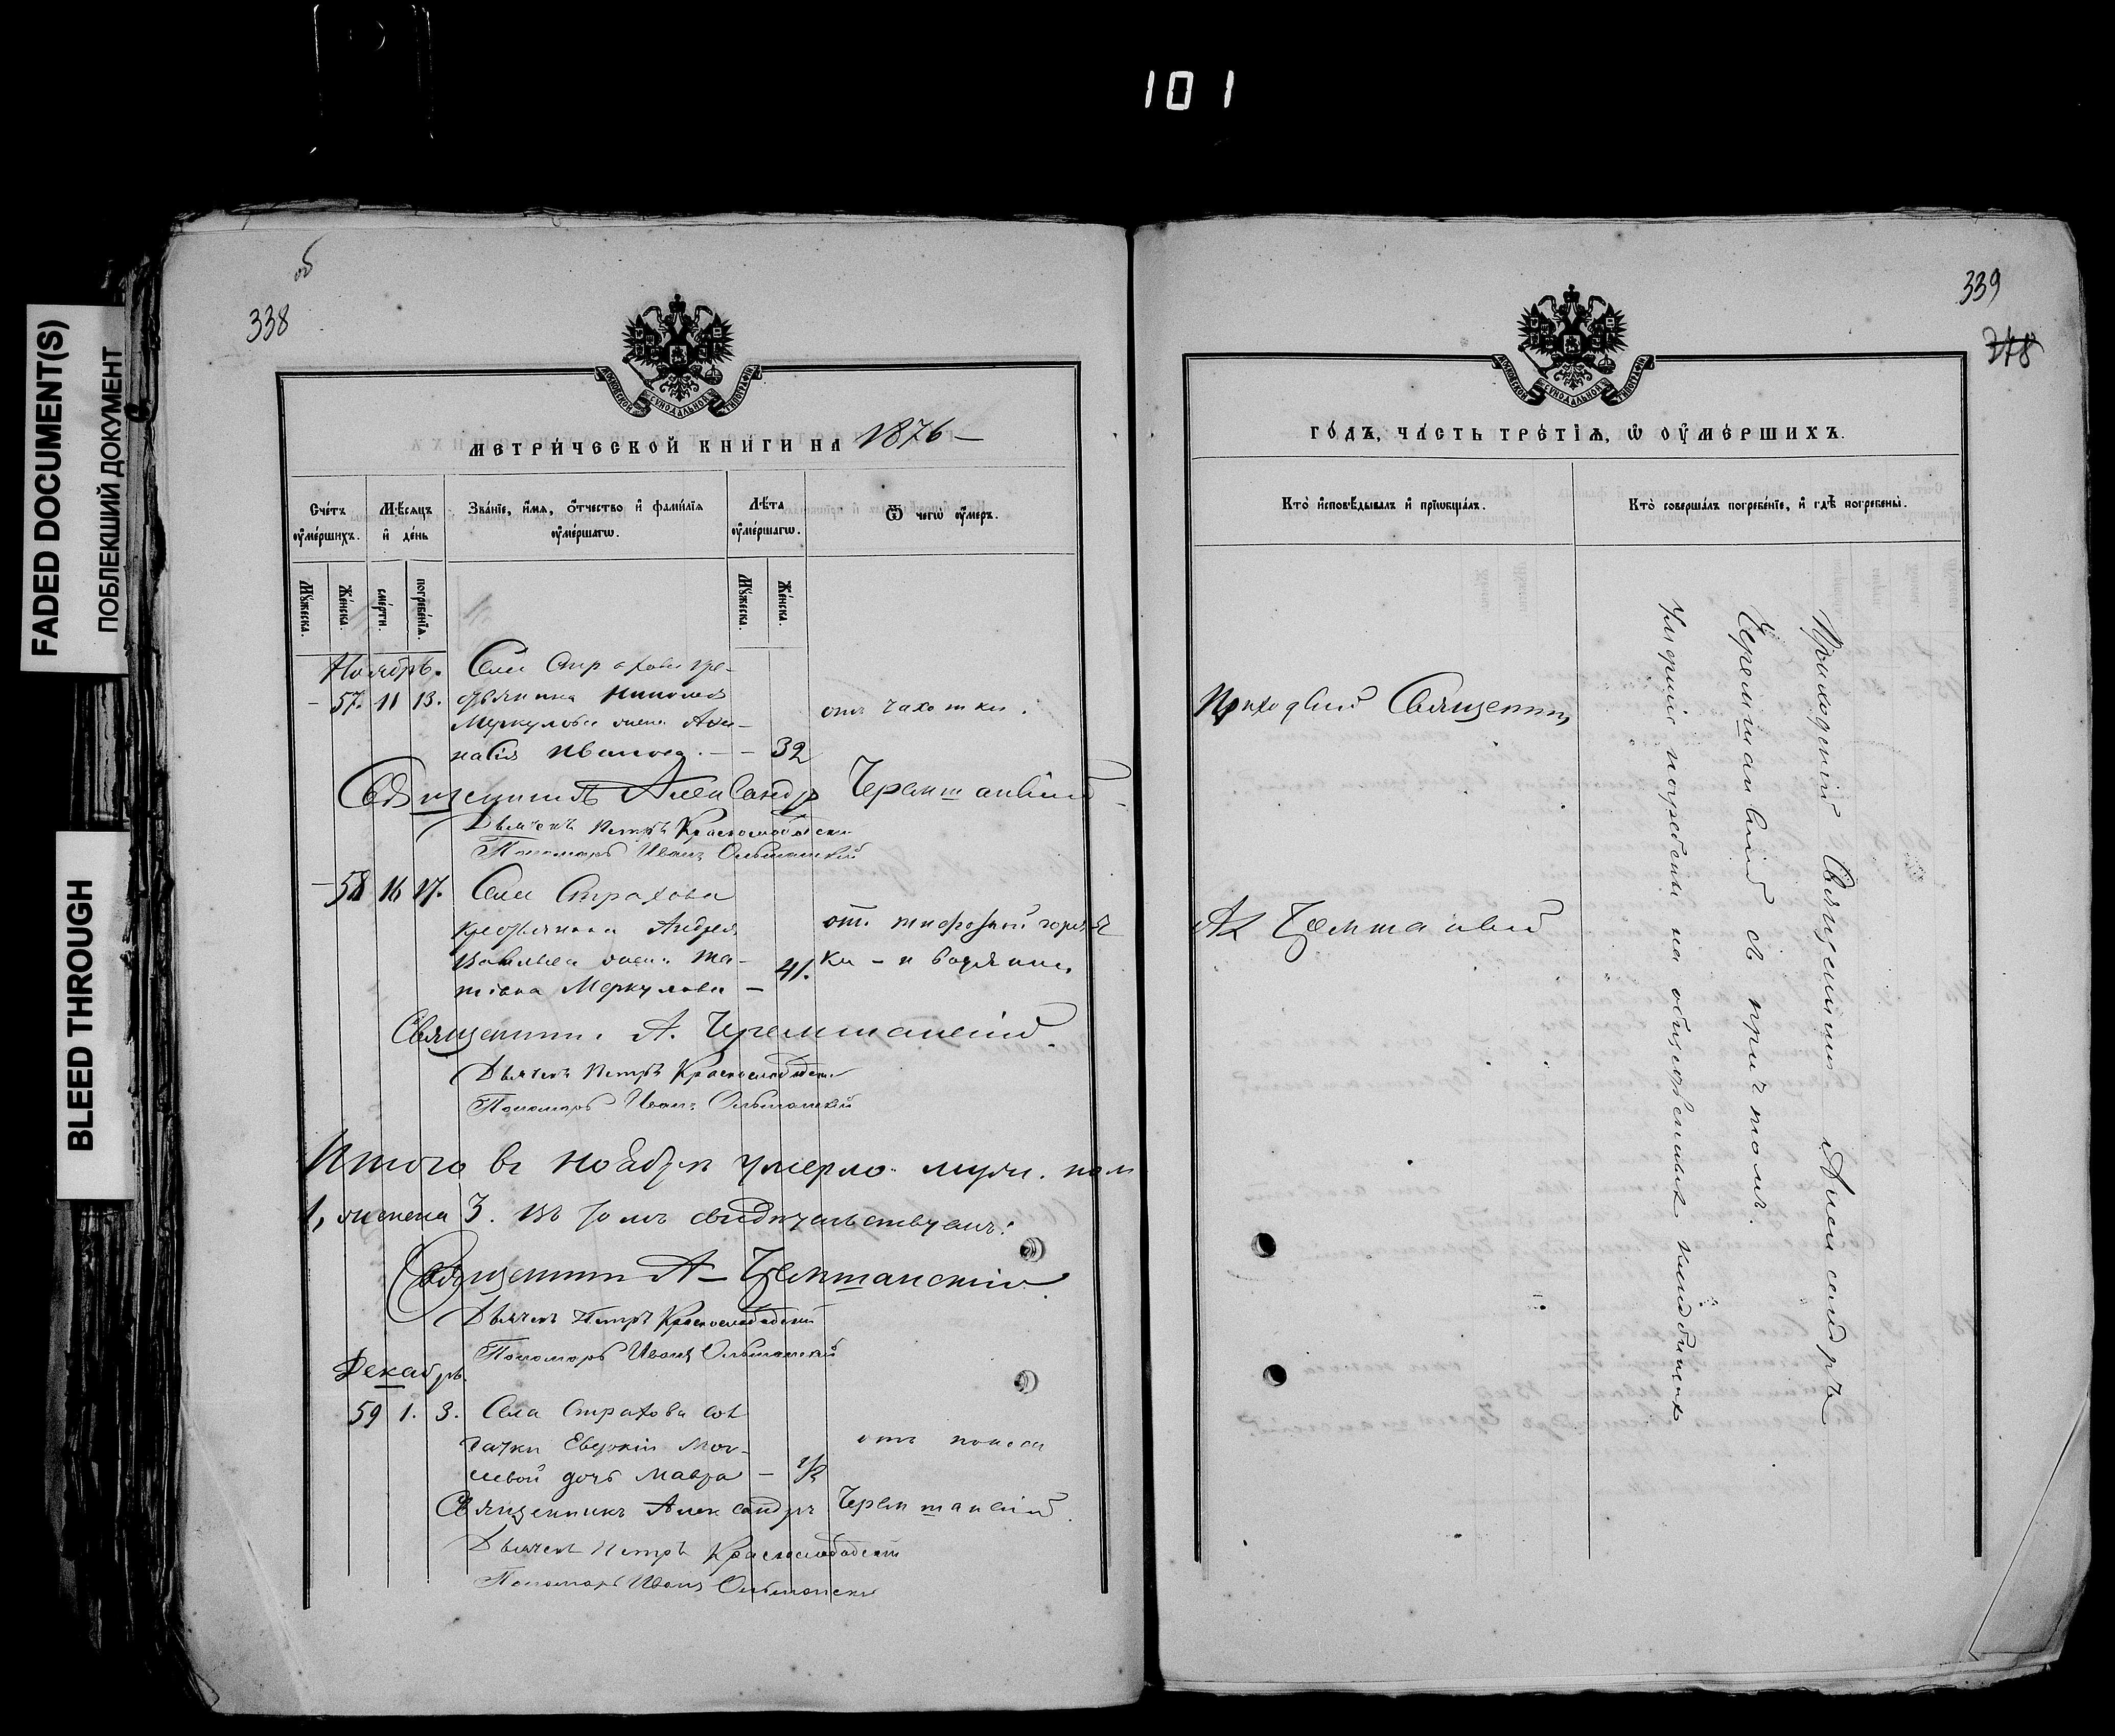 101
FADED DOCUMENT(S)
ПОБЛЕКШИЙ ДОКУМЕНТ
BLEED THROUGH
об
338
МОСКОВСКОЙ СУНОДАЛЬНОЙ ТИПОГРАФІИ
МЕТРИ́ЧЕСКОЙ КНИ́ГИ НА 1876
Сче́тъ ѹ҆ме́ршихъ.
Мѣ́сяцъ и҆ де́нь
Зва́нїе, и҆́мѧ, ѻ҆́тчество и҆ фами́лїѧ ѹ҆ме́ршагѡ.
Лѣ́та ѹ҆ме́ршагѡ.
Ѿ чегѡ̀ ѹ҆́меръ.
Мꙋ́жеска.
Же́нска.
сме́рти.
погребе́нїѧ.
Мꙋ́жеска.
Же́нска.
Ноябрь. Села Страхова кре-
57. 11 13. стьянина Николая
Меркулова жена Афа-
насія Иванова. — 32
отъ чахотки.
Священникъ Александр Черемшанскій
Дьячекъ Петръ Краснослободскій
Пономарь Иванъ Ольшанскій
58 16 17. Села Страхова
крестьянина Андрея
жена Та-
тіана Меркулова — 41.
отъ тифозной горяч
ки - и водянки
Священникъ А. Черемшанскій.
Дьячекъ Петръ Краснослободскій
Пономарь Иванъ Ольшанскій
Итого въ Ноябрѣ умерло муж. пола
1, женска 3. въ томъ свидѣтельствуемъ:
Священникъ А Черемшанскій
Дьячекъ Петръ Краснослободскій
Пономарь Иванъ Ольшанскій
Декабрь
59 1. 3. Села Страхова сол
датки Евдокіи Мои-
сеевой дочь Мавра — 1/2
отъ поноса
Священникъ Александръ Черемшанскій.
Дьячекъ Петръ Краснослободскій
Пономарь Иванъ Ольшанскій
339
248
МОСКОВСКОЙ СУНОДАЛЬНОЙ ТИПОГРАФІИ
ГО́ДЪ, ЧА́СТЬ ТРЕ́ТЇѦ, Ѡ҆ ОУ҆МЕ́РШИХЪ.
Кто̀ и҆сповѣ́дывалъ и҆ прїѡбща́лъ.
Кто̀ соверша́лъ погребе́нїе, и҆ гдѣ̀ погребены̀.
Приходскій Священникъ
Ал Черемшанскій
Приходскій Священникъ Александръ
Черемшанскій съ причтомъ.
Умершіе погребены на общественномъ кладбищѣ